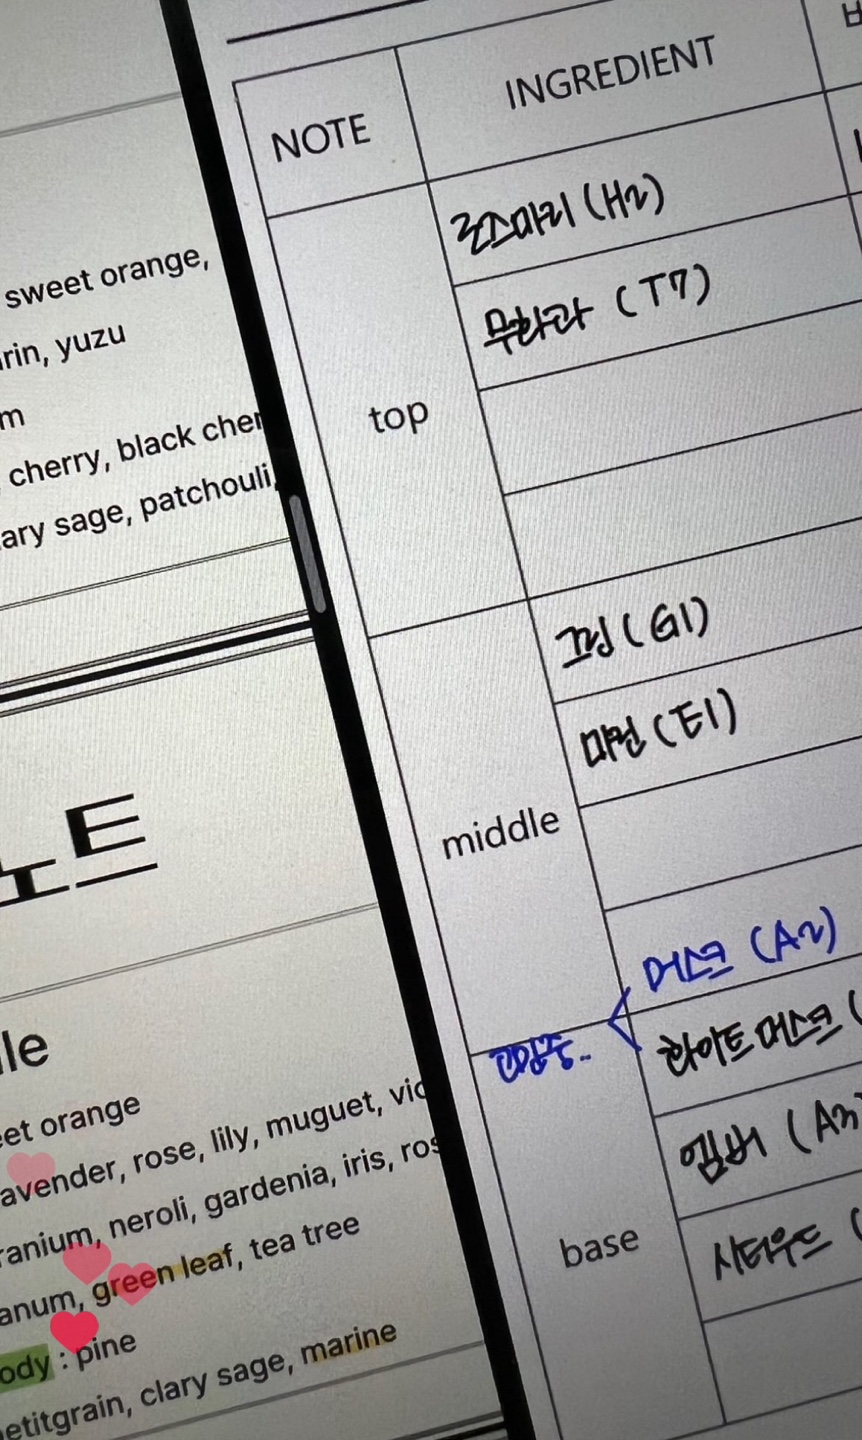 sweet orange,
rin, yuzu
m
cherry, black cher
ary sage, patchouli,
노트
le
et orange
avender, rose, lily, muguet, vio
ranium, neroli, gardenia, iris, ros
anum, green leaf, tea tree
ody : pine
etitgrain, clary sage, marine
NOTE
INGREDIENT
top
로즈마리 (H2)
무화과 (T7)
middle
그린 (G1)
마린 (E1)
머스크 (A2)
base
화이트머스크 (
엠버 (A3)
시더우드 (